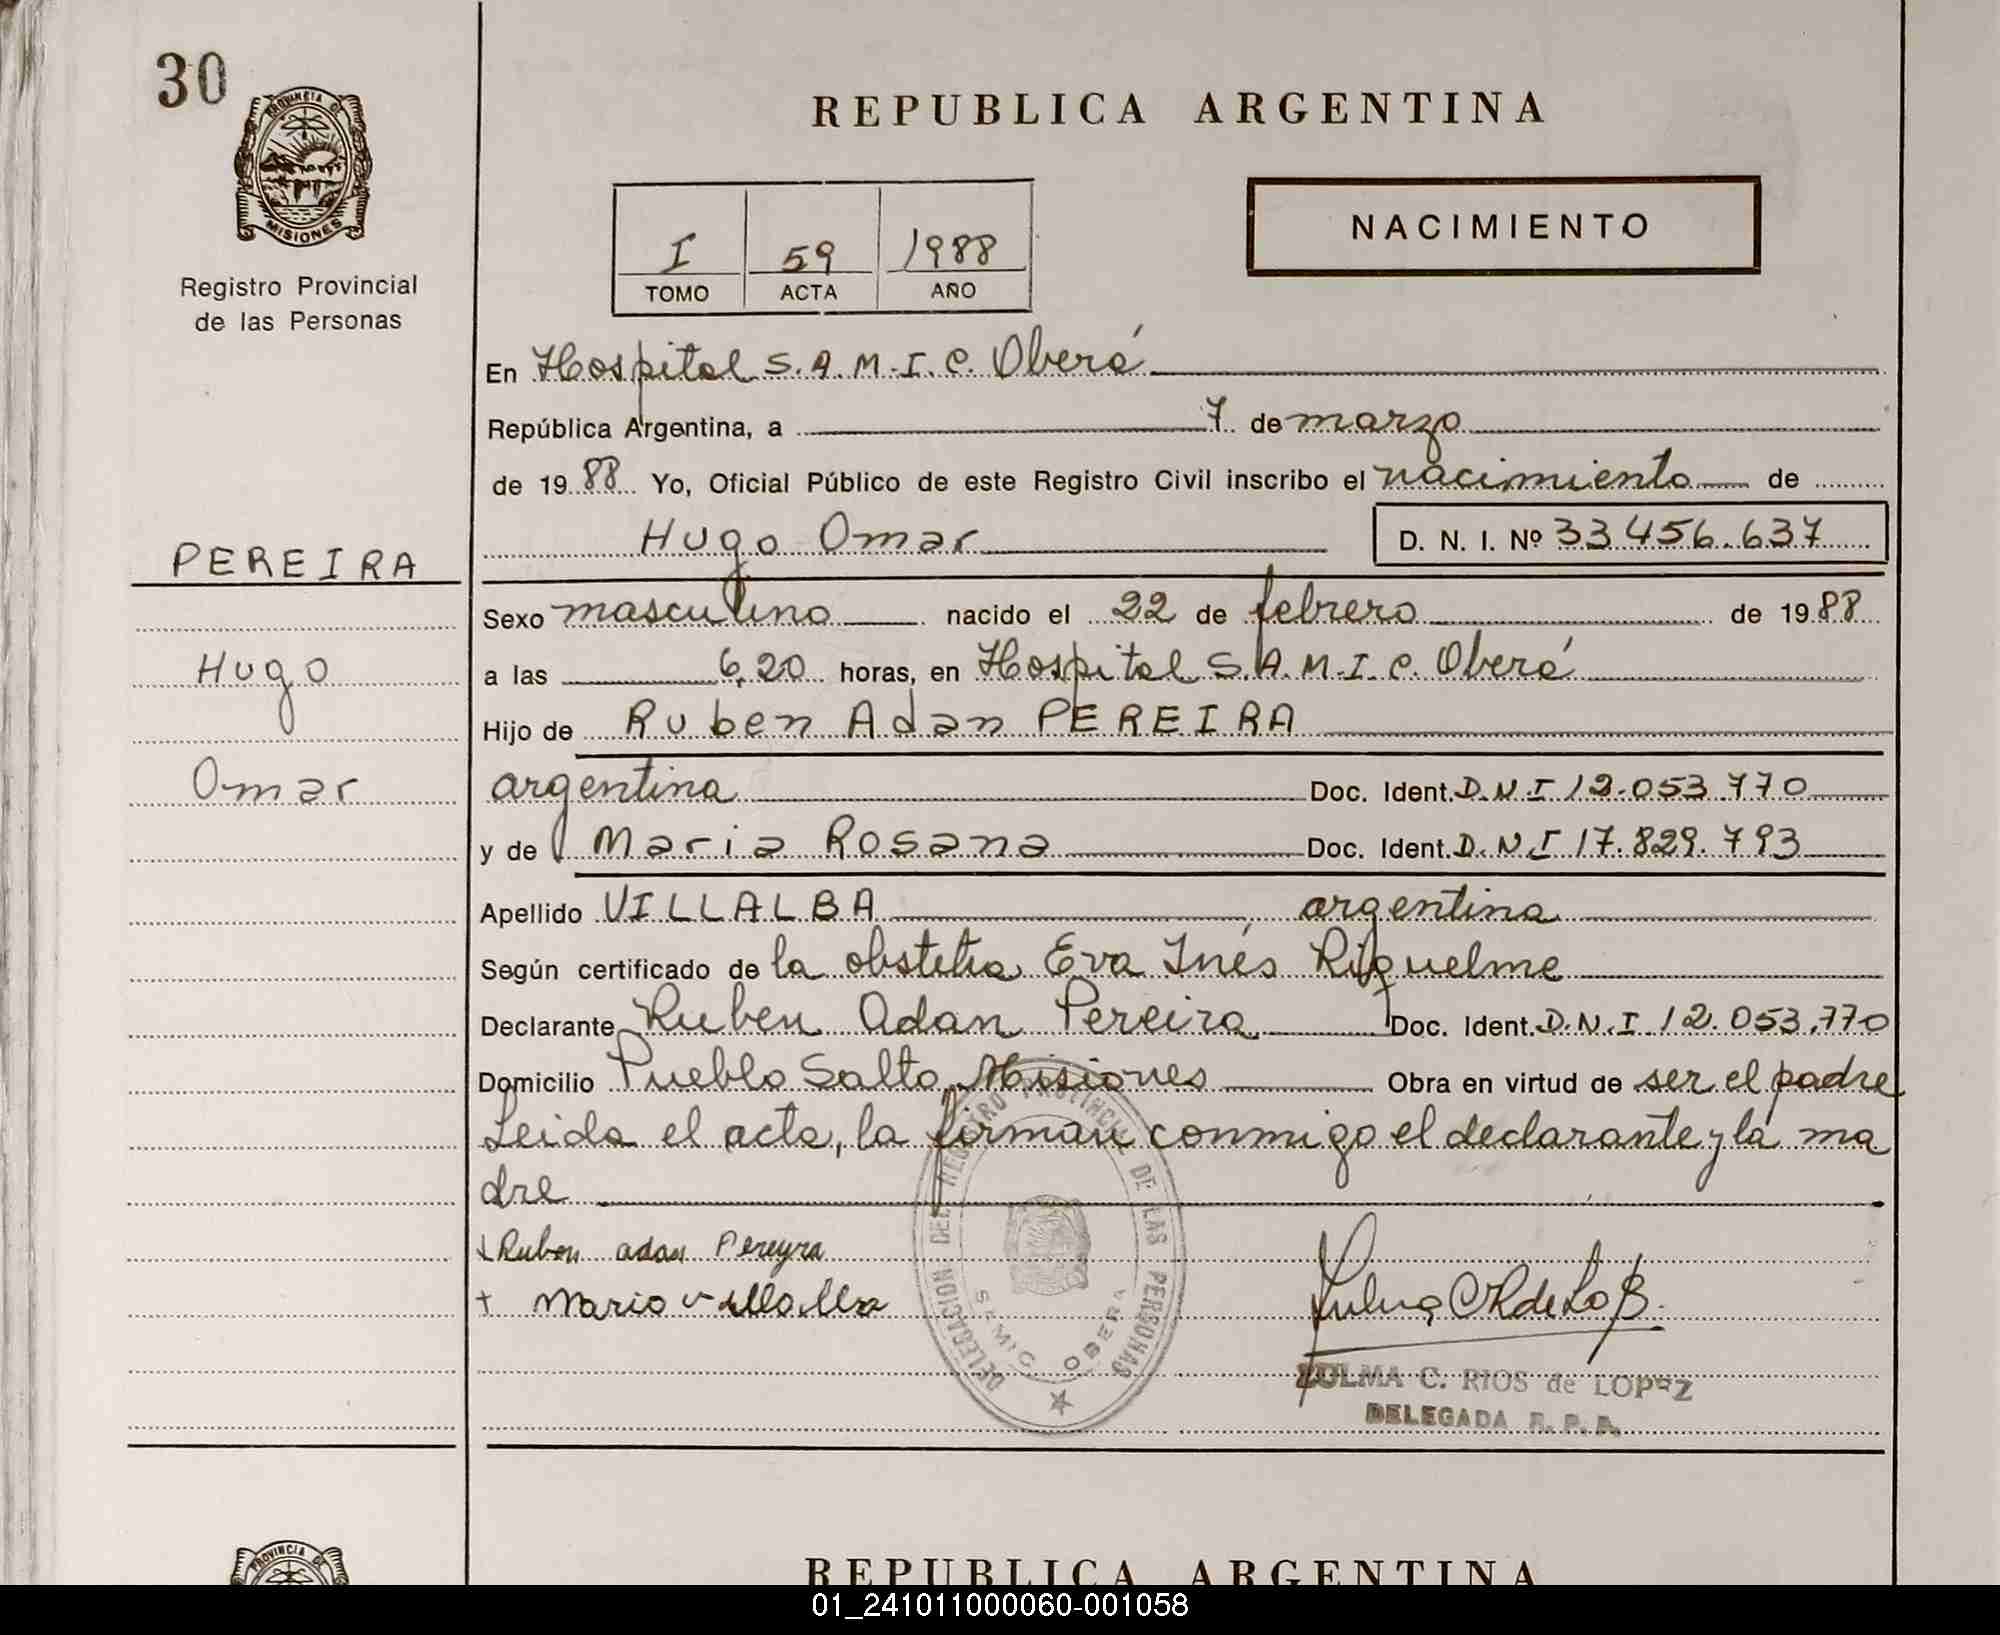 30
PROVINCIA DE
MISIONES
Registro Provincial
de las Personas
REPUBLICA ARGENTINA
I 59 1988
TOMO ACTA AÑO
NACIMIENTO
En Hospital S.A.M.I.C. Oberá
República Argentina, a 7 de marzo
de 1988 Yo, Oficial Público de este Registro Civil inscribo el nacimiento de
Hugo Omar D. N. I. Nº 33.456.637
PEREIRA
Hugo
Omar
Sexo masculino nacido el 22 de febrero de 1988
a las 6,20 horas, en Hospital S.A.M.I.C. Oberá
Hijo de Ruben Adan PEREIRA
argentina Doc. Ident. D.N.I 12.053.770
y de Maria Rosana Doc. Ident. D.N.I 17.829.793
Apellido VILLALBA argentina
Según certificado de la obstetra Eva Inés Riquelme
Declarante Ruben Adan Pereira Doc. Ident. D.N.I 12.053.770
Domicilio Pueblo Salto, Misiones Obra en virtud de ser el padre
Leida el acta, la firman conmigo el declarante y la ma
dre
Ruben adan Pereyra
+ Maria Villalba
DELEGACION DEL REGISTRO PROVINCIAL DE LAS PERSONAS
OBERA
ZULMA C. RIOS de LOPEZ
DELEGADA R. P. A.
PROVINCIA DE
REPUBLICA ARGENTINA
01_241011000060-001058